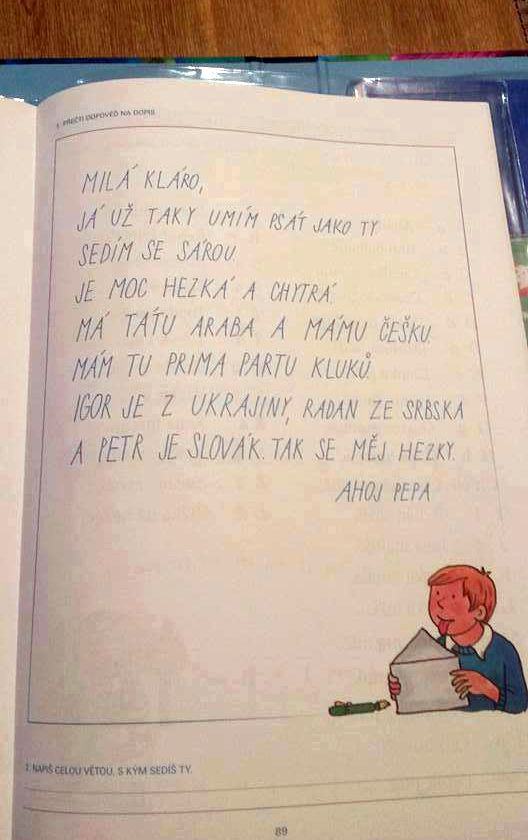 1. PŘEČTI ODPOVĚĎ NA DOPIS.
MILÁ KLÁRO,
JÁ UŽ TAKY UMÍM PSÁT JAKO TY.
SEDÍM SE SÁROU.
JE MOC HEZKÁ A CHYTRÁ.
MÁ TÁTU ARABA A MÁMU ČEŠKU.
MÁM TU PRIMA PARTU KLUKŮ.
IGOR JE Z UKRAJINY, RADAN ZE SRBSKA
A PETR JE SLOVÁK. TAK SE MĚJ HEZKY.
AHOJ PEPA
2. NAPIŠ CELOU VĚTOU, S KÝM SEDÍŠ TY.
89